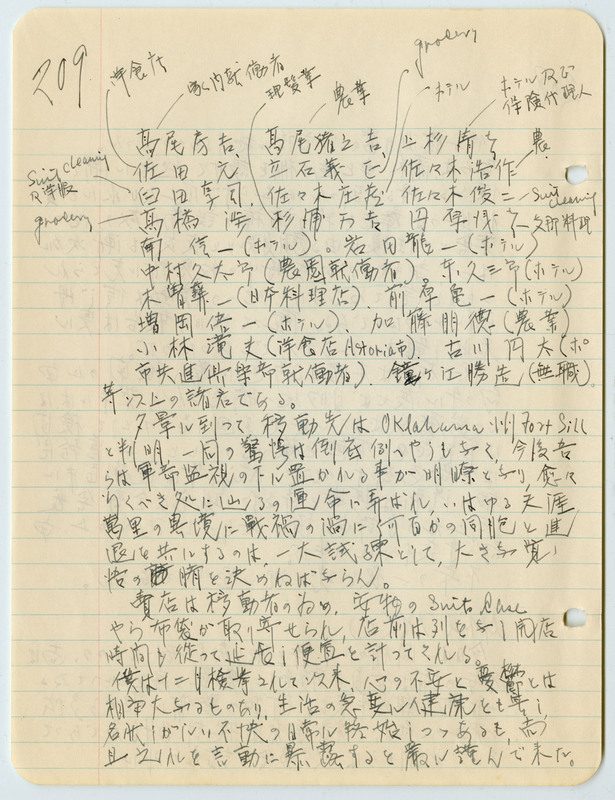 209
grocery
洋食店
家内就働者
理髪業
農業
ホテル
ホテル及び
保険代理人
高尾 吉、高尾 之吉、上杉清 農
佐田 元 立石義 佐々木浩作
Suit cleaning
及洋服
臼田 司、佐々木庄 佐々木俊二 Suit cleaning
grocery
高橋 浩 杉浦万吉 円 支那料理
南 信一(ホテル)。岩田龍一(ホテル)
中村久太郎(農園就働者)、東久三郎(ホテル)
木曽 一(日本料理店)、前原亀一(ホテル)
増岡 一(ホテル)、加藤朋徳(農業)
小林滝夫(洋食店Astoria市)、古川円太(ポ
市共進倶楽部就働者)、鐘ヶ江勝 (無職)。
等以上の諸君である。
夕暈に到って、移動先はOklahoma州Fort Sill
と判明、一同の驚愕は 今後吾
らは軍部監視の下に置かれる事が明瞭となり、愈々
べき の運命に弄ばれ、いはゆる天涯
萬里の異境に戦禍の渦に何百かの同胞と進
退を共にするのは、一大試練として、大きな覚
悟の 臍を決めねばならん。
賣店は移動者の為め、安物のSuit Case
やら布袋が取り寄せられ、店前は列をなし開店
時間も従って延長し便宜を計ってくれる。
僕は十二月検挙されて以来、心の不安と憂鬱とは
相当大なるものあり、生活の急変に健康とも害し
名状しがたい不快の日常に終始しつつあるも、而
且之れを言動に暴露すると厳に謹んで来た。